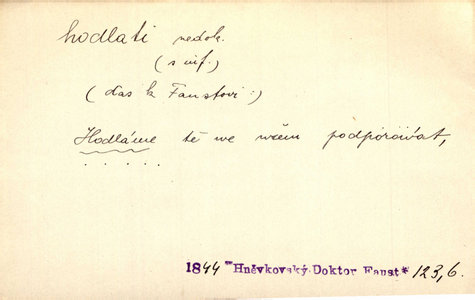 hodlati nedok.
(s inf.)
(ďas k Faustovi:)
Hodláme tě we wšem podporowat,
. . . . .
1844 "Hněvkovský Doktor Faust" 123,6.